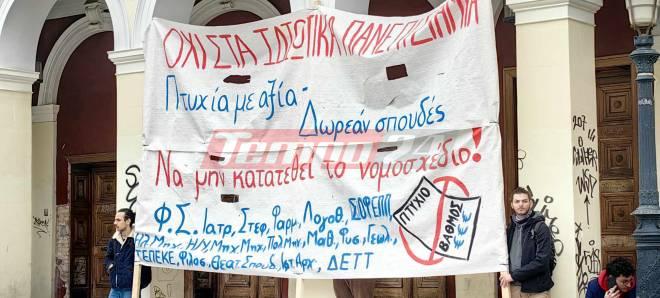 ΌΧΙ ΣΤΑ ΙΔΙΩΤΙΚΑ ΠΑΝΕΠΙΣΤΗΜΙΑ
Πτυχία με αξία -
Δωρεάν σπουδές
Να μην κατατεθεί το νομοσχέδιο!
Φ.Σ., Ιατρ, Στεφ, Φαρμ, Λογοθ, ΣΟΦΕΠΠ,
Ηλ.Μηχ, Η/Υ, Μηχ.Μηχ, Πολ.Μηχ, Μαθ, Φυσ, Γεωλ,
ΤΕΠΕΚΕ, Φιλοσ, Θεατ.Σπουδ, Ιστ.Αρχ, ΔΕΤΤ
ΠΤΥΧΙΟ
ΒΑΘΜΟΣ
207